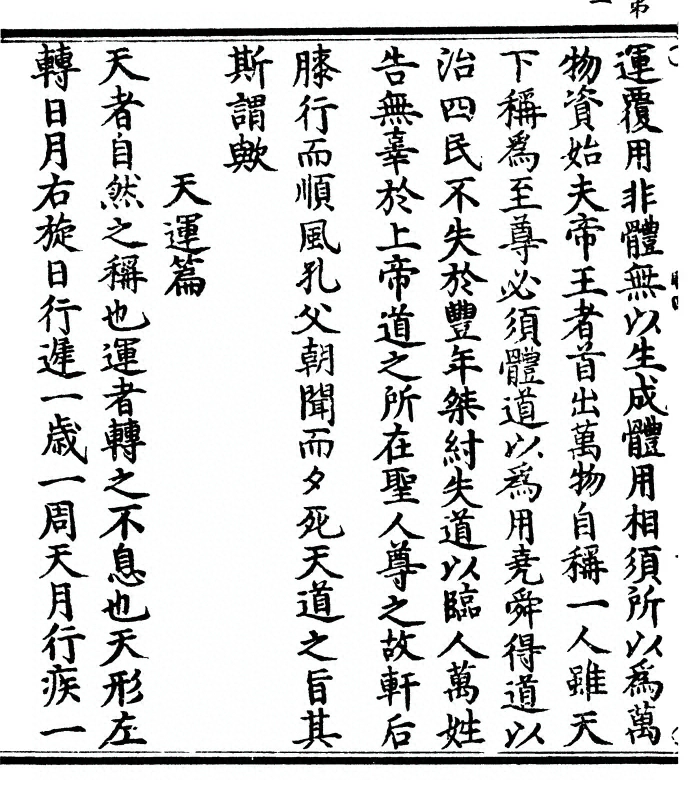 運覆用非體無以生成體用相須所以爲萬
物資始夫帝王者首出萬物自稱一人雖天
下稱爲至尊必須體道以爲用堯舜得道以
治四民不失於豐年桀紂失道以臨人萬姓
告無辜於上帝道之所在聖人尊之故軒后
膝行而順風孔父朝聞而夕死天道之旨其
斯謂歟
天運篇
天者自然之稱也運者轉之不息也天形左
轉日月右旋日行遲一歲一周天月行疾一